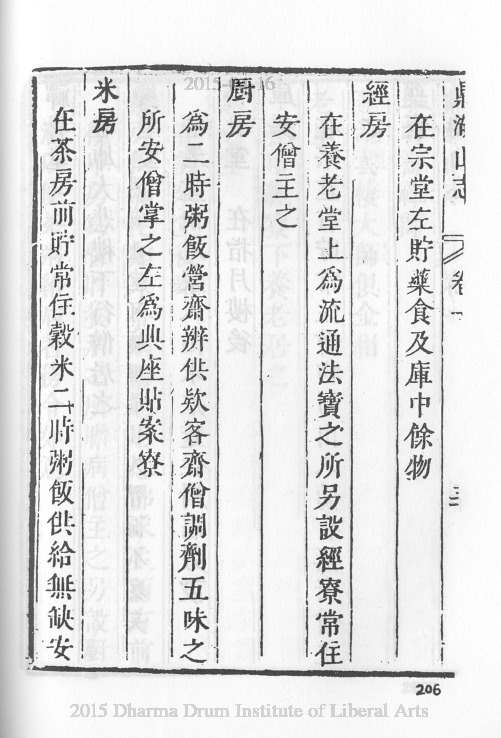 鼎湖山志 卷一
在宗堂左貯藥食及庫中餘物
經房
在養老堂上為流通法寶之所另設經寮常住
安僧主之
廚房
為二時粥飯營齋辦供欵客齋僧調劑五味之
所安僧掌之左為典座貼案寮
米房
在茶房前貯常住穀米二時粥飯供給無缺安
206
2015 Dharma Drum Institute of Liberal Arts